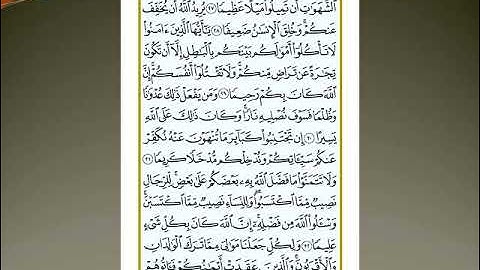 ٱلشَّهَوَٰتِ أَن تَمِيلُوا۟ مَيْلًا عَظِيمًا ٢٧ يُرِيدُ ٱللَّهُ أَن يُخَفِّفَ
عَنكُمْ ۚ وَخُلِقَ ٱلْإِنسَٰنُ ضَعِيفًا ٢٨ يَٰٓأَيُّهَا ٱلَّذِينَ ءَامَنُوا۟
لَا تَأْكُلُوٓا۟ أَمْوَٰلَكُم بَيْنَكُم بِٱلْبَٰطِلِ إِلَّآ أَن تَكُونَ
تِجَٰرَةً عَن تَرَاضٍ مِّنكُمْ ۚ وَلَا تَقْتُلُوٓا۟ أَنفُسَكُمْ ۚ إِنَّ
ٱللَّهَ كَانَ بِكُمْ رَحِيمًا ٢٩ وَمَن يَفْعَلْ ذَٰلِكَ عُدْوَٰنًا
وَظُلْمًا فَسَوْفَ نُصْلِيهِ نَارًا ۚ وَكَانَ ذَٰلِكَ عَلَى ٱللَّهِ
يَسِيرًا ٣٠ إِن تَجْتَنِبُوا۟ كَبَآئِرَ مَا تُنْهَوْنَ عَنْهُ نُكَفِّرْ
عَنكُمْ سَيِّـَٔاتِكُمْ وَنُدْخِلْكُم مُّدْخَلًا كَرِيمًا ٣١
وَلَا تَتَمَنَّوْا۟ مَا فَضَّلَ ٱللَّهُ بِهِۦ بَعْضَكُمْ عَلَىٰ بَعْضٍ ۚ لِّلرِّجَالِ
نَصِيبٌ مِّمَّا ٱكْتَسَبُوا۟ ۖ وَلِلنِّسَآءِ نَصِيبٌ مِّمَّا ٱكْتَسَبْنَ ۚ
وَسْـَٔلُوا۟ ٱللَّهَ مِن فَضْلِهِۦٓ ۗ إِنَّ ٱللَّهَ كَانَ بِكُلِّ شَىْءٍ
عَلِيمًا ٣٢ وَلِكُلٍّ جَعَلْنَا مَوَٰلِىَ مِمَّا تَرَكَ ٱلْوَٰلِدَانِ
وَٱلْأَقْرَبُونَ ۚ وَٱلَّذِينَ عَقَدَتْ أَيْمَٰنُكُمْ فَـَٔاتُوهُمْ